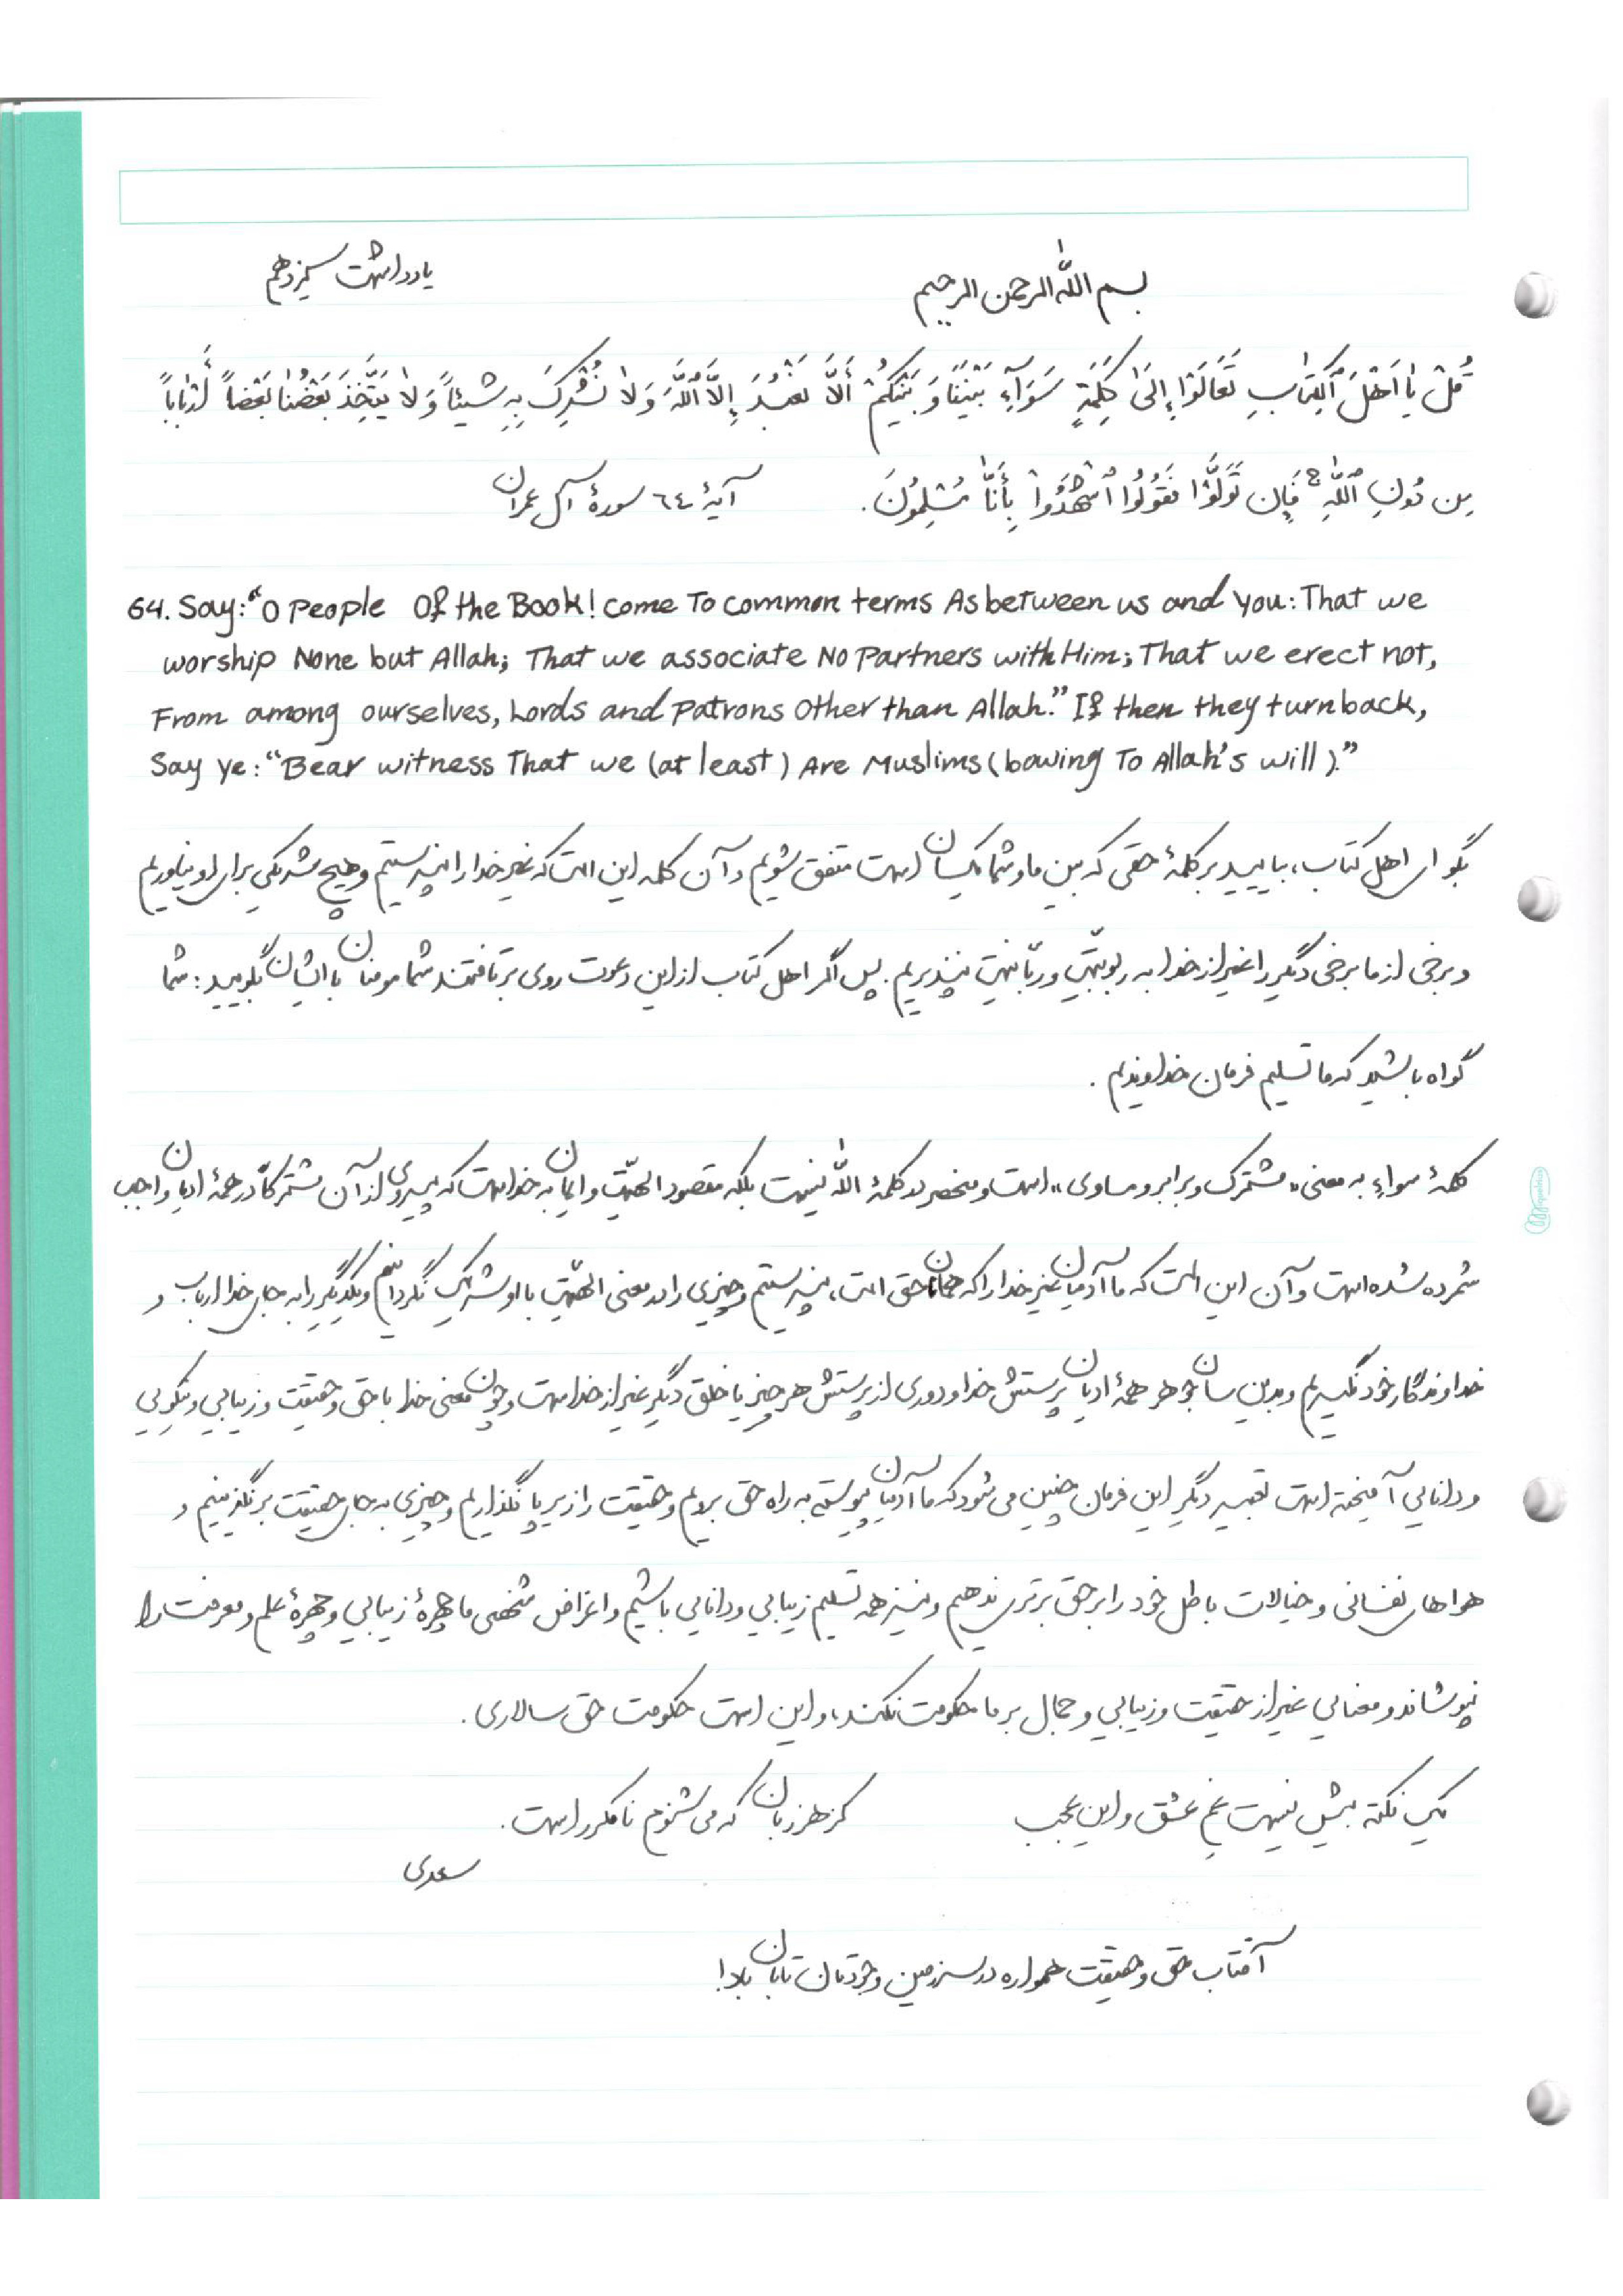 بسم اللّٰه الرحمن الرحیم
یادداشت سیزدهم
قُلْ یٰا اَهْلَ ٱلْکِتٰابِ تَعَالَوْا إِلَىٰ کَلِمَةٍ سَوَآءٍ بَیْنَنَا وَ بَیْنَکُمْ أَلَّا نَعْبُدَ إِلَّا ٱللَّهَ وَلاٰ نُشْرِکَ بِهِ شَیئاً وَلاٰ یَتَّخِذَ بَعْضُنٰا بَعْضاً أَرْبٰاباً
مِن دُونِ ٱللَّهِ ۚ فَإِن تَوَلَّوْا فَقُولُوا ٱشْهَدُوا بِأَنَّا مُسْلِمُونَ.
آیهٔ ٦٤ سورهٔ آل عمران
64. Say: "O People Of the Book! come To common terms As between us and You: That we
worship None but Allah; That we associate No Partners with Him; That we erect not,
From among ourselves, Lords and Patrons Other than Allah." If then they turn back,
Say ye: "Bear witness That we (at least) Are Muslims (bowing To Allah's will)."
بگو ای اهل کتاب، بیایید بر کلمهٔ حقی که بین ما و شما یکسان است متفق شویم و آن کلمه این است که غیر خدا را نپرستیم و هیچ شریکی برای او نیاوریم
و برخی از ما برخی دیگر را غیر از خدا به ربوبیّت و ربّانیت نپذیریم. پس اگر اهل کتاب از این دعوت روی برتافتند شما مومنان با ایشان بگویید: شما
گواه باشید که ما تسلیم فرمان خداوندیم.
کلمهٔ سواءٍ به معنی «مشترک و برابر و مساوی» است و منحصر در کلمهٔ اللّٰه نیست بلکه مقصود الهیّت و ایمان به خداست که پیروی از آن مشترکاً در همهٔ ادیان واجب
شمرده شده است و آن این است که ما آدمیان غیر خدا را که همانا حق است، نپرستیم و چیزی را در معنی الهیّت با او شریک نگردانیم و یکدیگر را به جای خدا ارباب و
خداوندگار خود نگیریم و بدین سان جوهر همهٔ ادیان پرستش خدا و دوری از پرستش هر چیز یا خلق دیگر غیر از خداست و چون معنی خدا با حق و حقیقت و زیبایی و نکویی
و دانایی آمیخته است تعبیر دیگر این فرمان چنین می شود که ما آدمیان پیوسته به راه حق برویم و حقیقت را زیر پا نگذاریم و چیزی به جای حقیقت برنگزینیم و
هواهای نفسانی و خیالات باطل خود را بر حق برتری ندهیم و نیز همه تسلیم زیبایی و دانایی باشیم و اغراض شخصی ما چهرهٔ زیبایی و چهرهٔ علم و معرفت را
نپوشاند و معنایی غیر از حقیقت و زیبایی و جمال بر ما حکومت نکند، و این است حکومت حق سالاری.
یک نکته بیش نیست غم عشق و این عجب
کز هر زبان که می شنوم نامکرر است.
سعدی
آفتاب حق و حقیقت همواره در سرزمین وجودتان تابان باد!